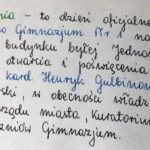 nia - to dzień oficjalne
o Gimnazjum Nr 1 na
budynku byłej Jedno
otwarcia i poświęcenia
kard. Henryk Gulbinow
ski, w obecności władz
rządu miasta, Kuratorium
czniów Gimnazjum.